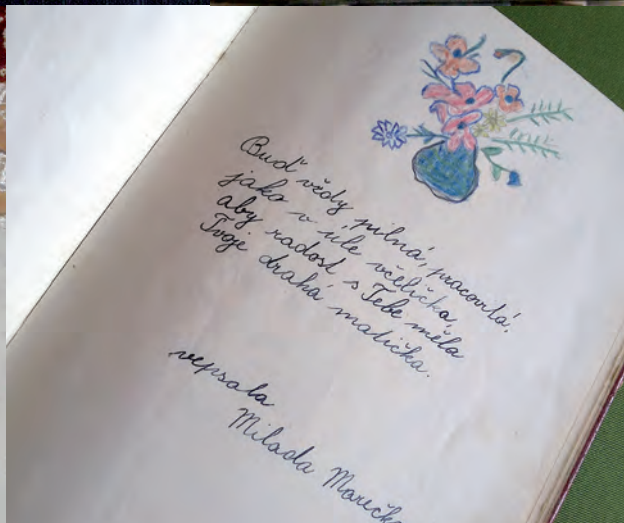 Buď vždy pilná, pracovitá,
jako v úle včelička,
aby radost s Tebe měla
Tvoje drahá matička.
vepsala
Milada